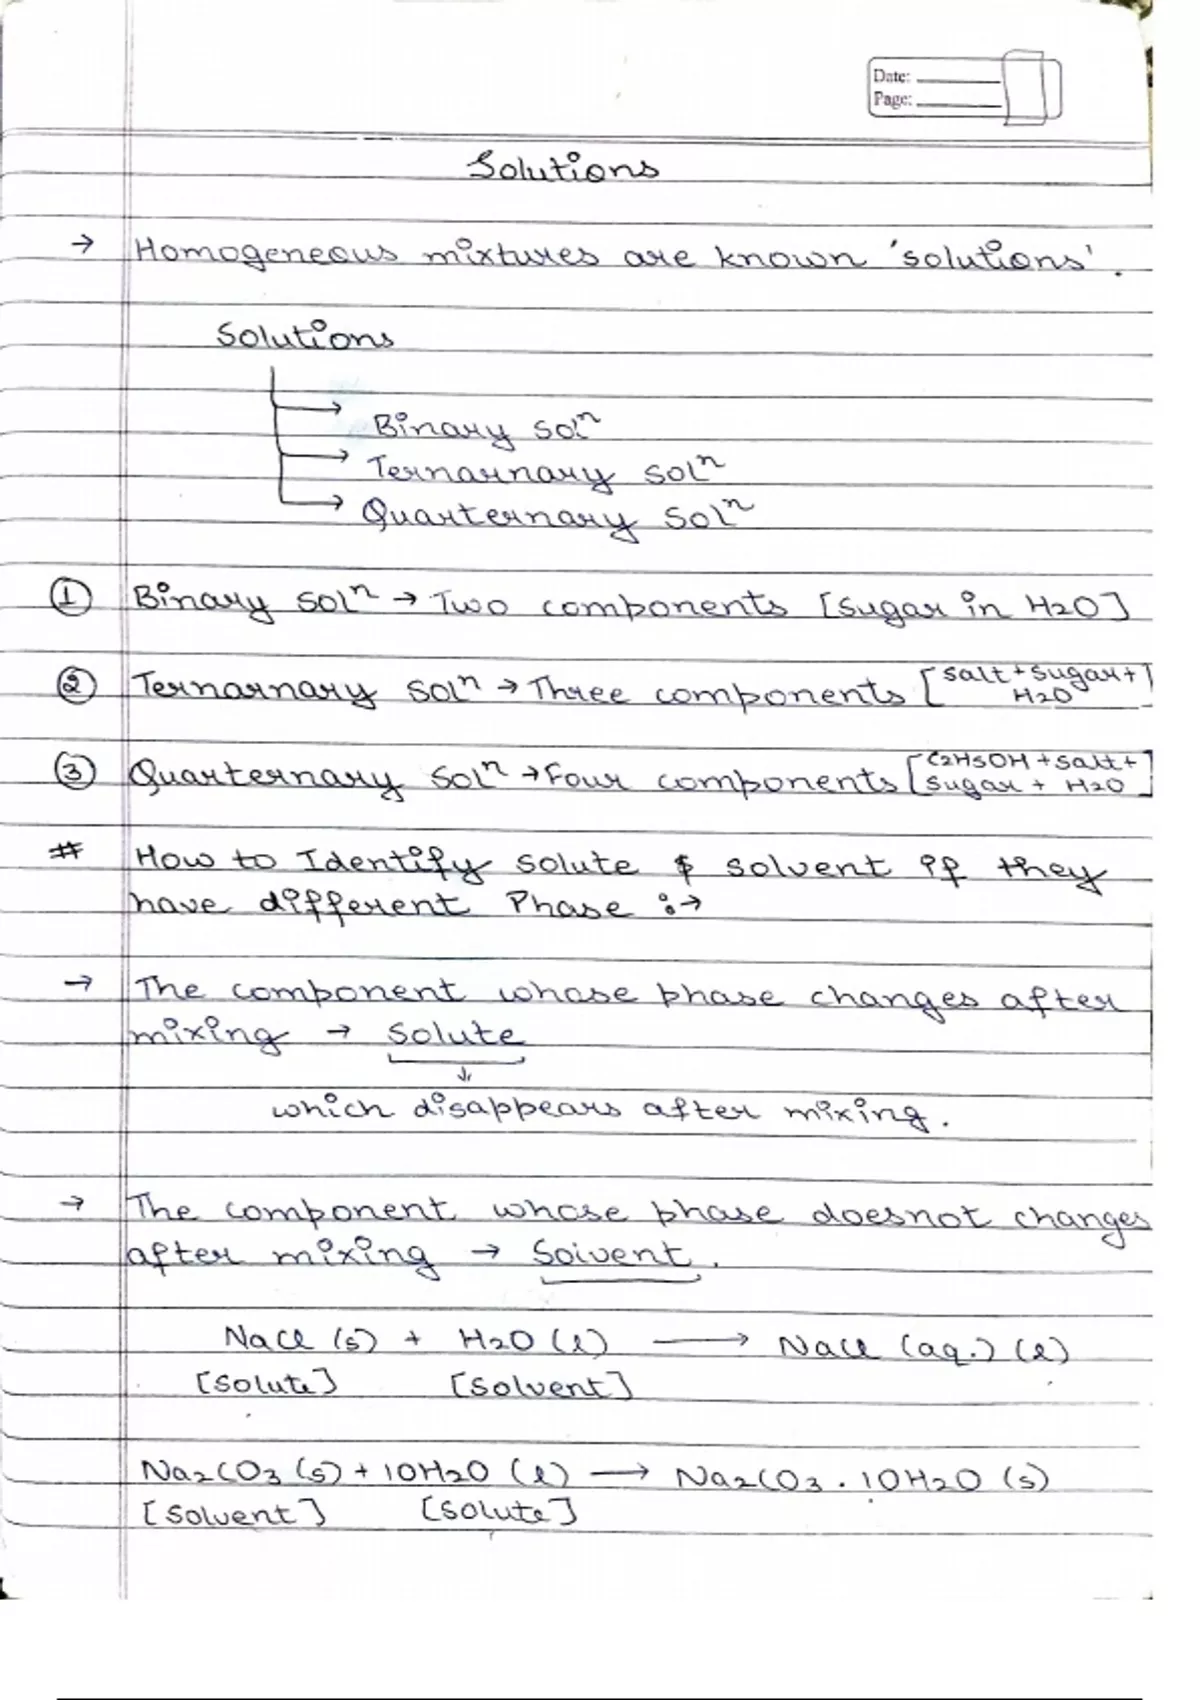 Date:
Page:
Solutions
→ Homogeneous mixtures are known 'solutions'.
Solutions
→ Binary solⁿ
→ Ternarnary solⁿ
→ Quarternary solⁿ
① Binary solⁿ → Two components [Sugar in H2O]
② Ternarnary solⁿ → Three components [Salt + Sugar + H2O]
③ Quarternary solⁿ → Four components [C2H5OH + Salt + Sugar + H2O]
# How to Identify solute & solvent if they
have different Phase :→
→ The component whose phase changes after
mixing → Solute
↓
which disappears after mixing.
→ The component whose phase doesnot changes
after mixing → Solvent.
NaCl (s) + H2O (l) ⟶ NaCl (aq.) (l)
[Solute] [Solvent]
Na2CO3 (s) + 10H2O (l) ⟶ Na2CO3 . 10H2O (s)
[Solvent] [Solute]